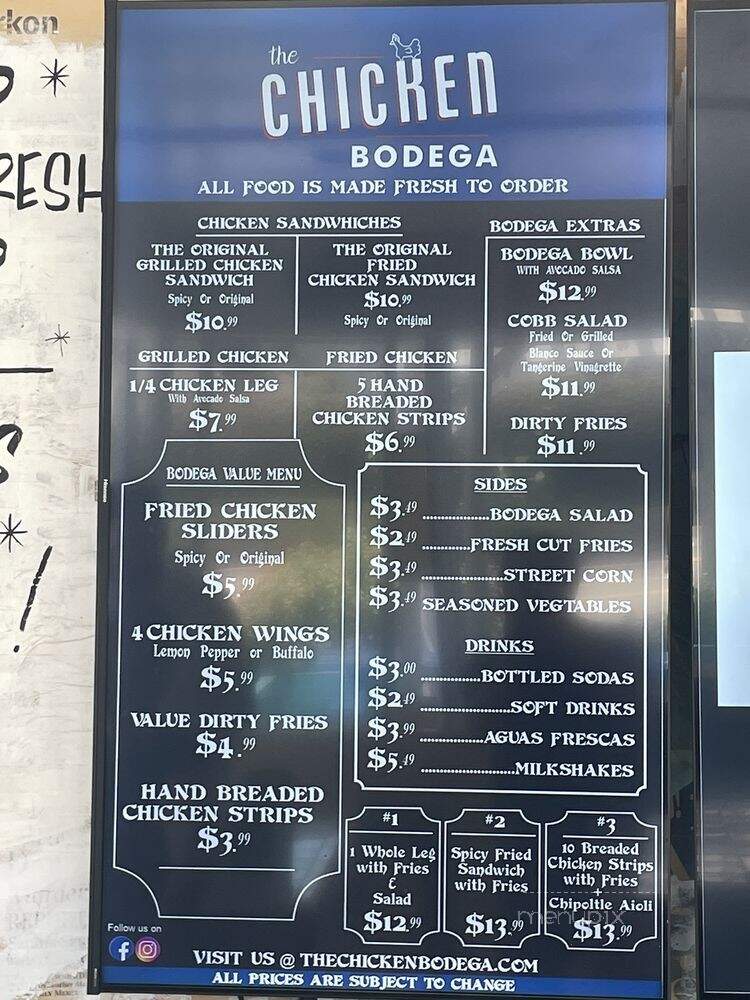 kon
RESH
the
CHICKEN
BODEGA
ALL FOOD IS MADE FRESH TO ORDER
CHICKEN SANDWHICHES
THE ORIGINAL
GRILLED CHICKEN
SANDWICH
Spicy Or Original
$10.99
THE ORIGINAL
FRIED
CHICKEN SANDWICH
$10.99
Spicy Or Original
BODEGA EXTRAS
BODEGA BOWL
WITH AVOCADO SALSA
$12.99
COBB SALAD
Fried Or Grilled
Blanco Sauce Or
Tangerine Vinagrette
$11.99
DIRTY FRIES
$11.99
GRILLED CHICKEN
1/4 CHICKEN LEG
With Avocado Salsa
$7.99
FRIED CHICKEN
5 HAND
BREADED
CHICKEN STRIPS
$6.99
BODEGA VALUE MENU
FRIED CHICKEN
SLIDERS
Spicy Or Original
$5.99
4 CHICKEN WINGS
Lemon Pepper or Buffalo
$5.99
VALUE DIRTY FRIES
$4.99
HAND BREADED
CHICKEN STRIPS
$3.99
SIDES
$3.49 ..............BODEGA SALAD
$2.49 ..........FRESH CUT FRIES
$3.49 .................STREET CORN
$3.49 SEASONED VEGTABLES
DRINKS
$3.00 ............BOTTLED SODAS
$2.49 ..................SOFT DRINKS
$3.99 .............AGUAS FRESCAS
$5.49 ...................MILKSHAKES
#1
1 Whole Leg
with Fries
&
Salad
$12.99
#2
Spicy Fried
Sandwich
with Fries
$13.99
#3
10 Breaded
Chicken Strips
with Fries
+
Chipoltle Aioli
$13.99
menupix
Follow us on
VISIT US @ THECHICKENBODEGA.COM
ALL PRICES ARE SUBJECT TO CHANGE